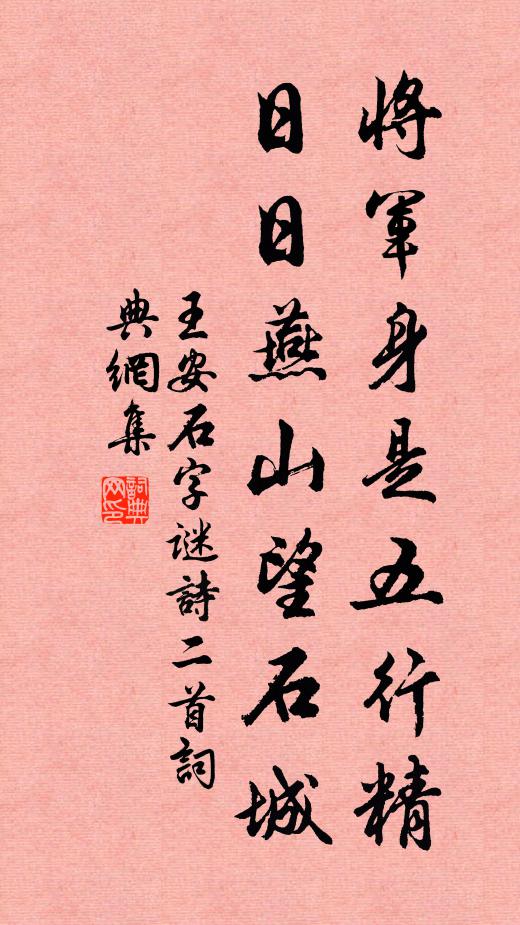 將軍身是五行精
日日燕山望石城
王安石字谜詩二首詞
典網集
詞典
网印